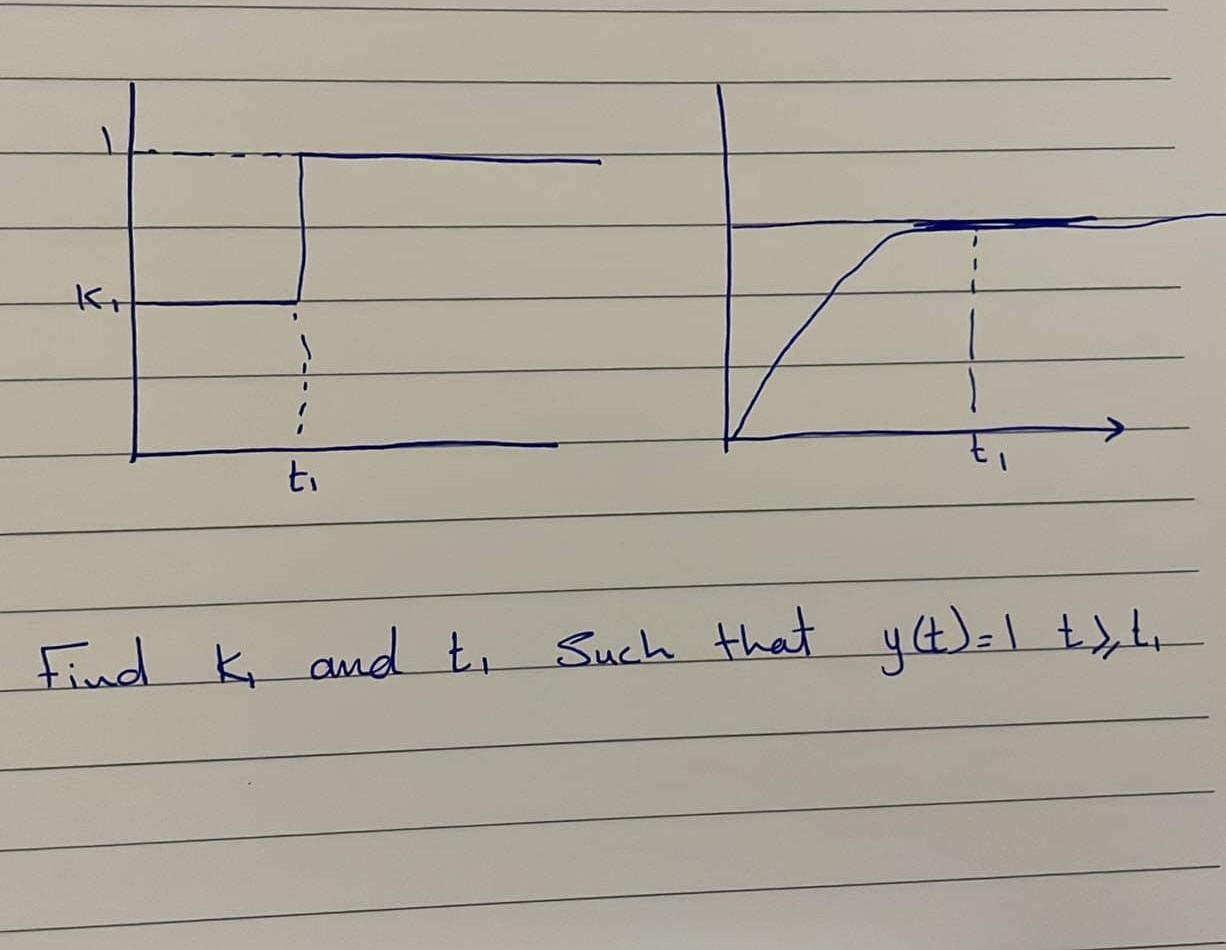 1
K₁
t₁
t₁
Find K₁ and t₁ Such that y(t)=1 t⩾t₁